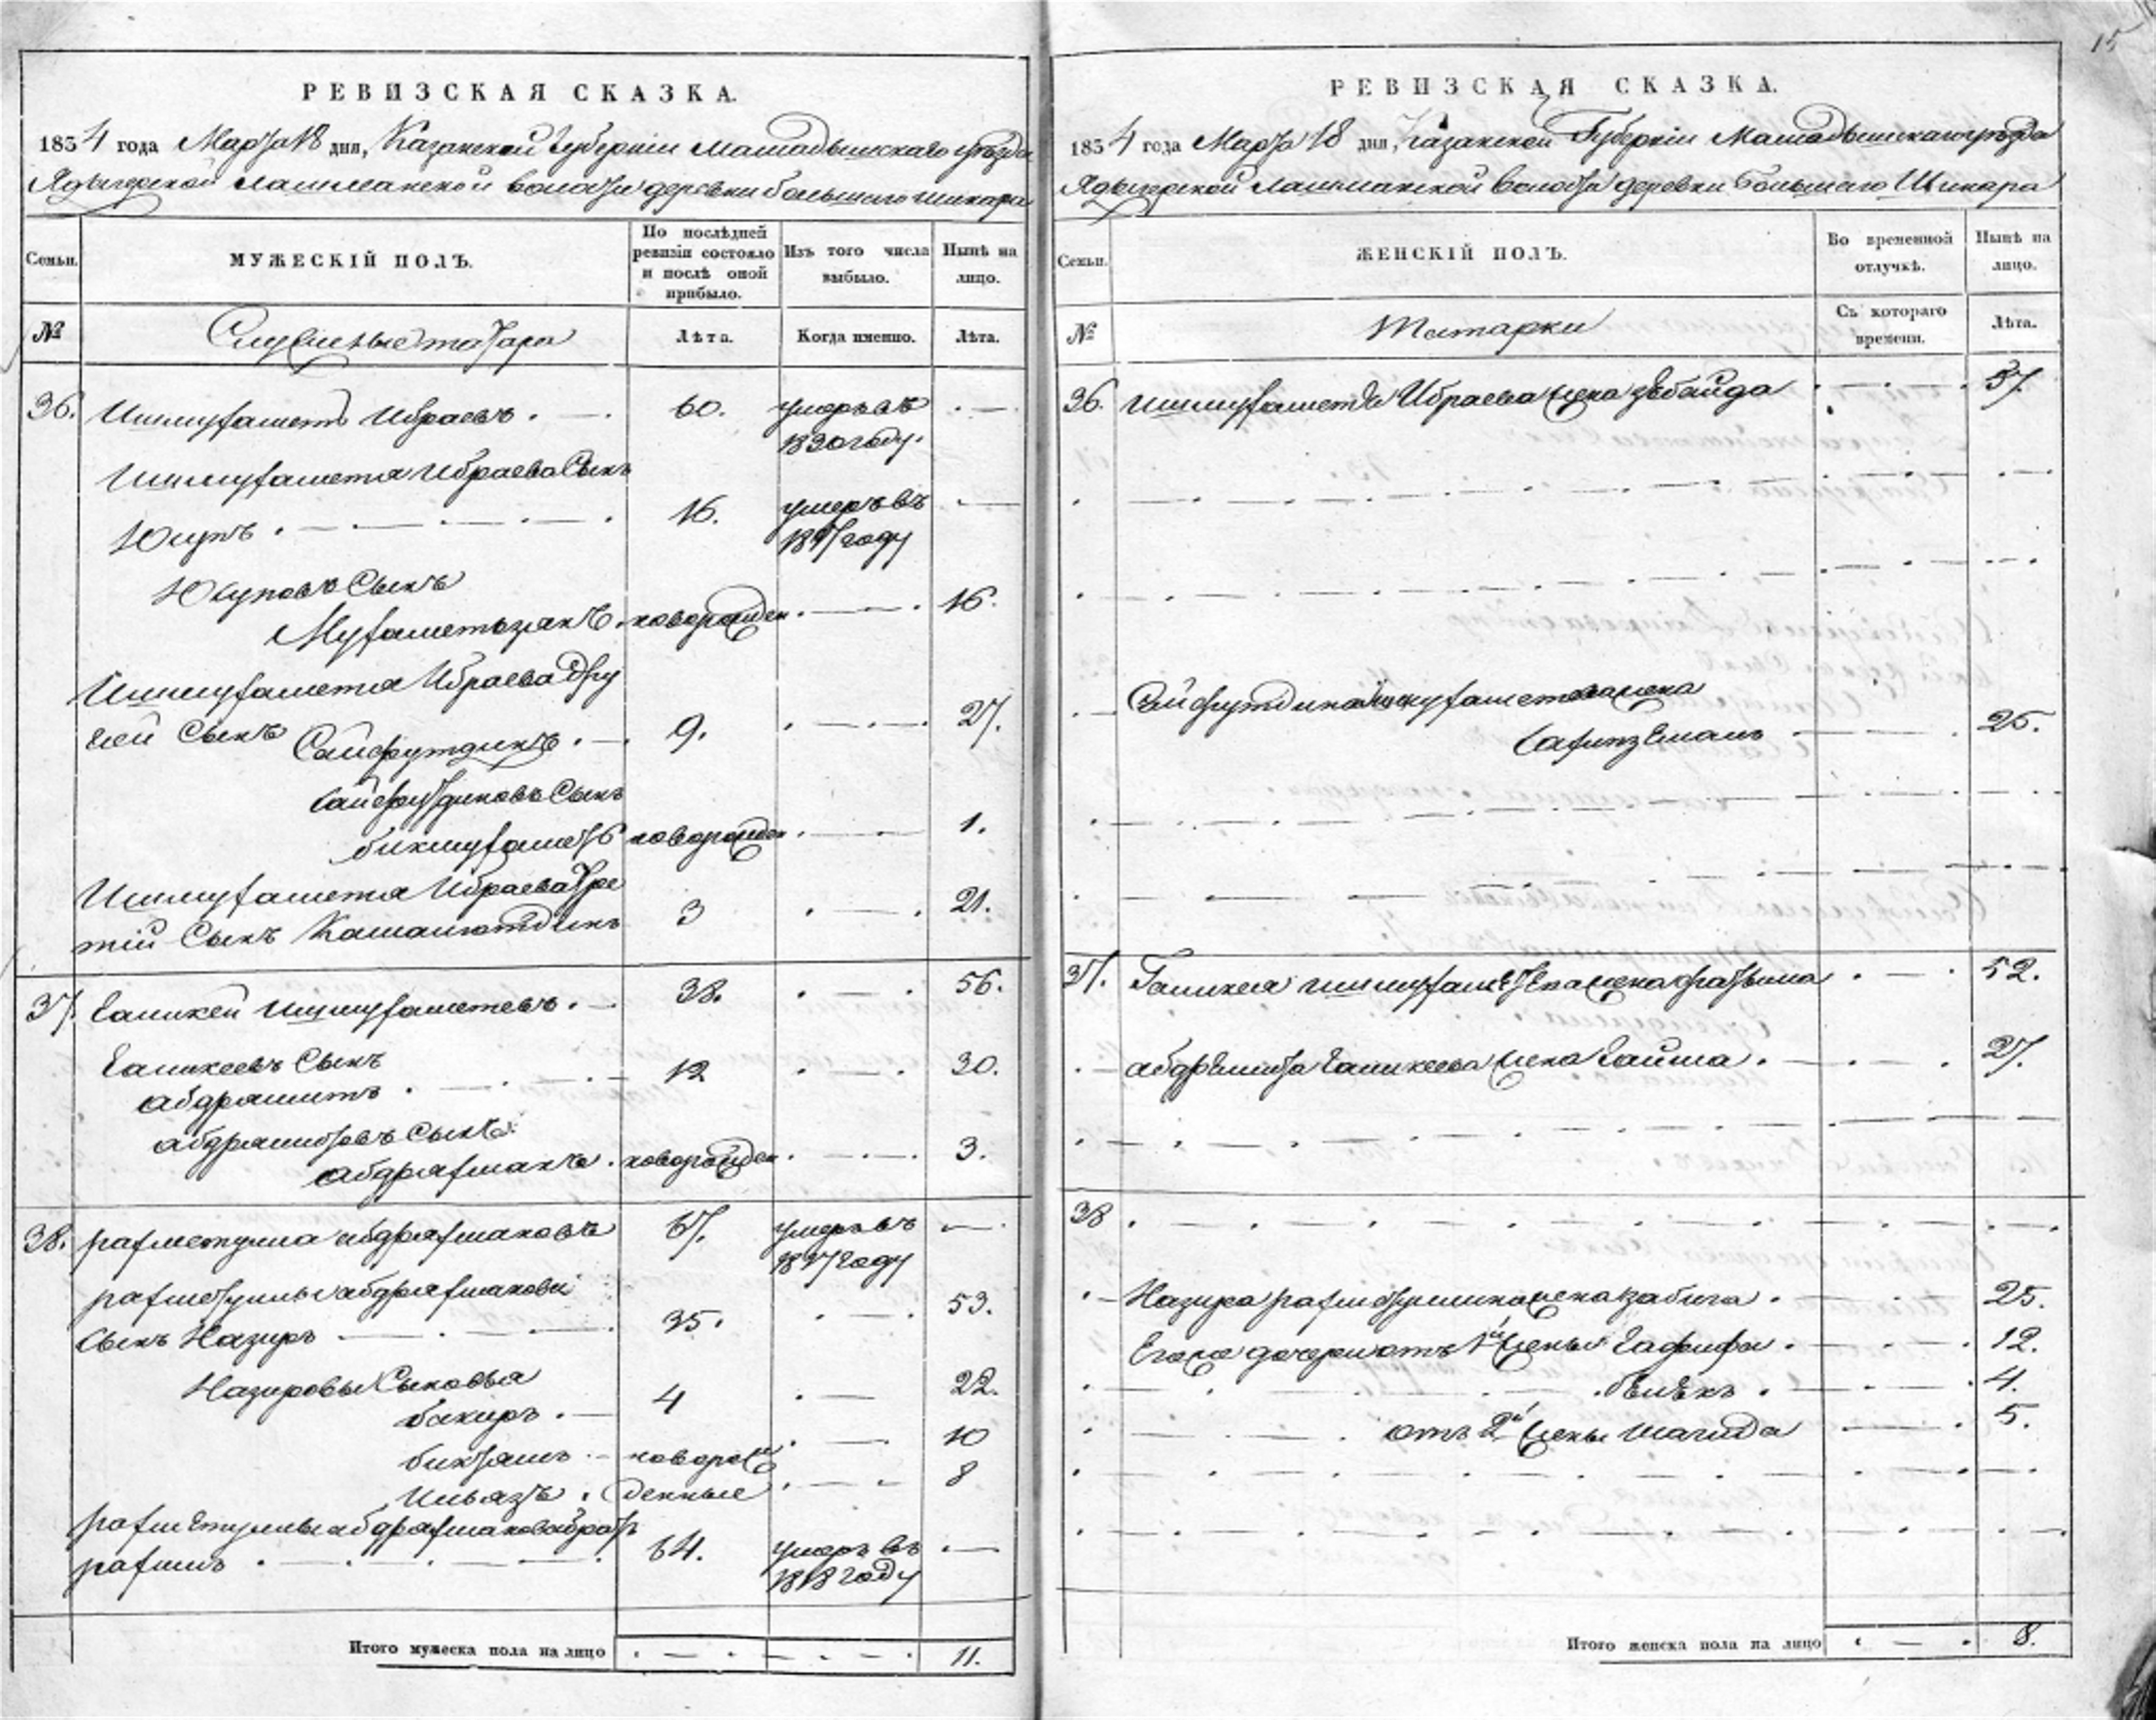 15
РЕВИЗСКАЯ СКАЗКА.
1854 года Марта 18 дня, Казанской губерніи Мамадышскаго уѣзда
Ядыгерской лашманской волости деревни большаго шикара
Семьи.
МУЖЕСКІЙ ПОЛЪ.
По послѣдней ревизіи состояло и послѣ оной прибыло.
Изъ того числа выбыло.
Нынѣ на лицо.
№
Служилые татара
Лѣта.
Когда именно.
Лѣта.
36. Ишмухаметъ Ибраевъ . — 60. умеръ въ . —
1850 году.
Ишмухаметя Ибраева Сынъ
Юсупъ . — . — . — . 16. умеръ въ . —
году
Юсуповъ Сынъ
Мухаметьзянъ . новорожден . — . 16.
Ишмухаметя Ибраева дру
гой Сынъ Сайфутдинъ . — . 9. . — . 27.
Сайфутдиновъ Сынъ
бикмухаметъ новорожден . — 1.
Ишмухаметя Ибраева тре
тій Сынъ Камалютдинъ 3 . — . 21.
37. Галикей Ишмухаметевъ . — 38. . — . 56.
Галикеевъ Сынъ
абдряшитъ . — . — 12 . — . 30.
абдряшитовъ Сынъ
абдряхманъ . новорожден . — . 3.
38. рахметулла абдряхмановъ 67. умеръ въ . —
1847 году
рахметуллы абдряхманова
Сынъ Назиръ — . — . 35. . — . 53.
Назировы Сыновья
бакиръ . — 4 . — 22.
бикташъ . — новорож . — 10
Ильязъ . денные . — . 8
рахметуллы абдряхманова братъ
рахимъ . — . — . 64. умеръ въ . —
году
Итого мужеска пола на лицо . — . — . — . 11.
РЕВИЗСКАЯ СКАЗКА.
1854 года Марта 18 дня, Казанской Губерніи Мамадышскаго уѣзда
Ядыгерской лашманской волости деревни большаго Шикара
Семьи.
ЖЕНСКІЙ ПОЛЪ.
Во временной отлучкѣ.
Нынѣ на лицо.
№
Татарки
Съ котораго времени.
Лѣта.
36. Ишмухаметя Ибраева жена Зюбайда . — . 57.
Сайфутдина Ишмухаметева жена
— . 25.
37. Галикея Ишмухаметева жена фатьима . — . 52.
абдряшита Галикеева жена Гайша . — . 27.
38
Назира рахметуллина жена забига . — . 25.
Егоже дочери отъ 1й жены Гафифа . — . 12.
. — . 4.
отъ 2й жены Шагида — . 5.
Итого женска пола на лицо . — . 8.